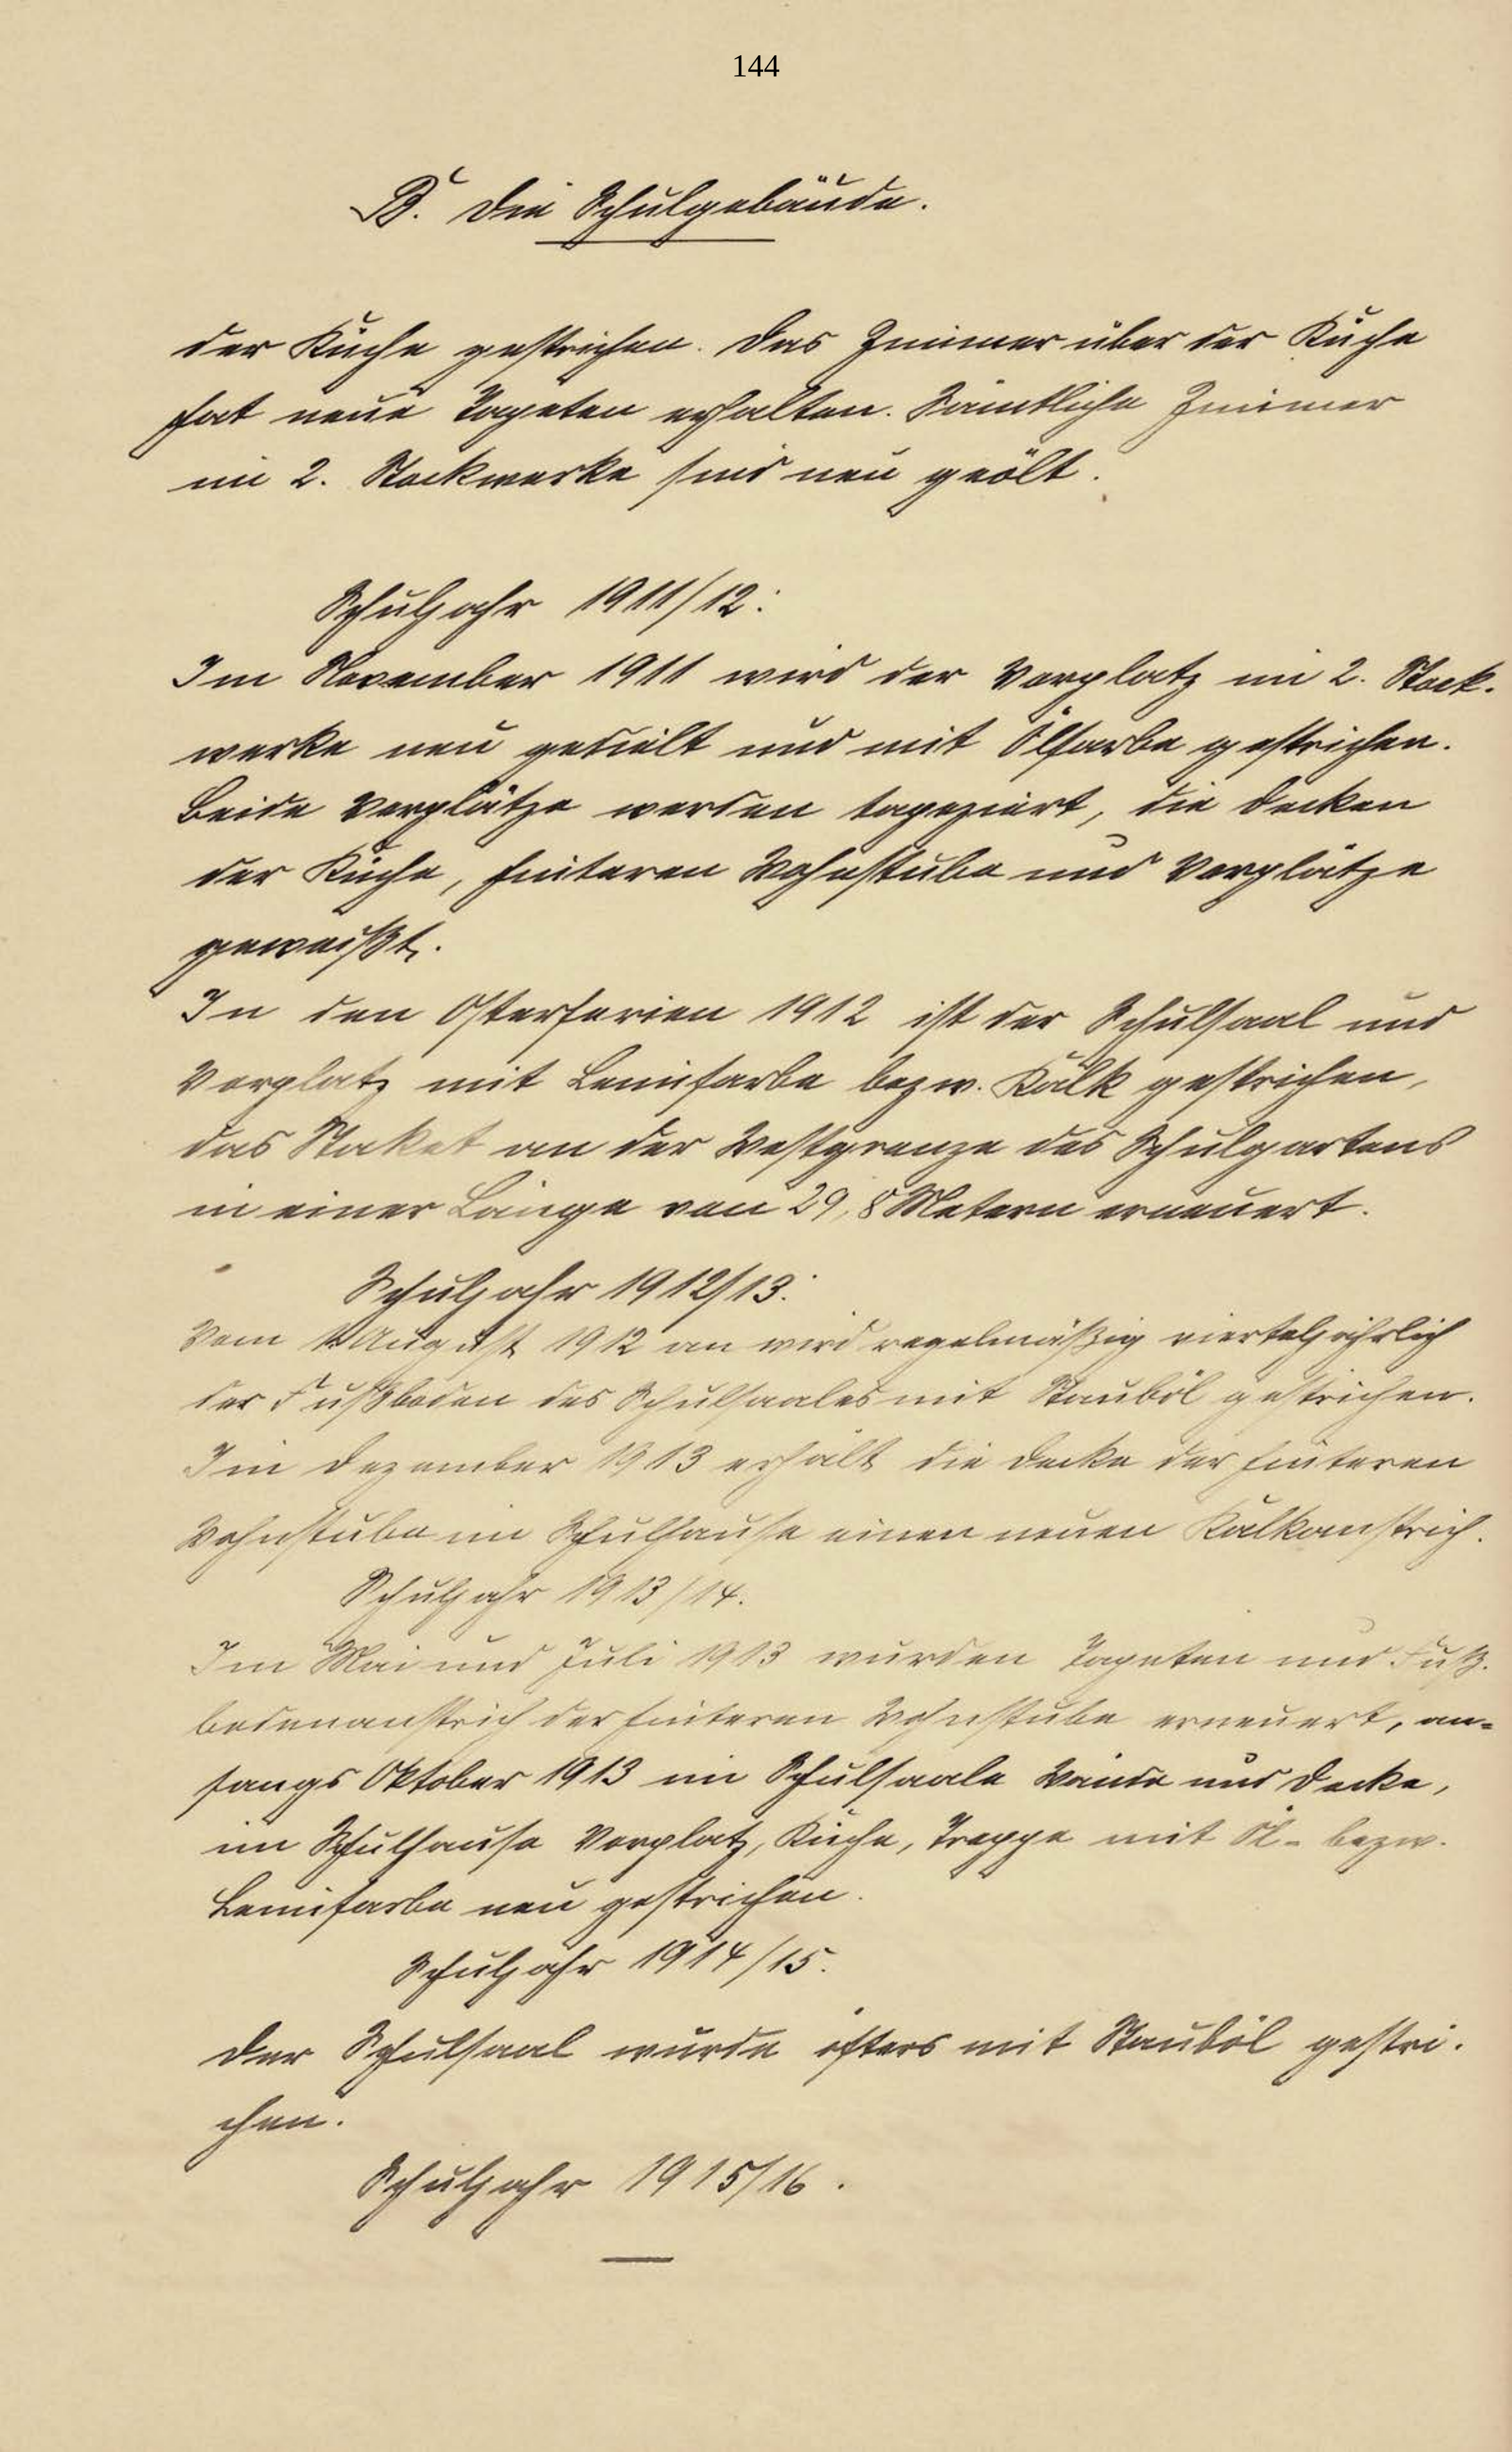 144
B. Die Schulgebäude.
der Küche gestrichen. Das Zimmer über der Küche
hat neue Tapeten erhalten. Sämtliche Zimmer
im 2. Stockwerke sind neu geölt.
Schuljahr 1911/12:
Im November 1911 wird der Vorplatz im 2. Stock-
werke neu gedielt und mit Ölfarbe gestrichen.
Beide Vorplätze werden tapeziert, die Decken
der Küche, hinteren Wohnstube und Vorplätze
geweißt.
In den Osterferien 1912 ist der Schulsaal und
Vorplatz mit Leimfarbe bezw. Kalk gestrichen,
das Staket an der Westgrenze des Schulgartens
in einer Länge von 29,8 Metern erneuert.
Schuljahr 1912/13:
Vom 1. August 1912 an wird regelmäßig vierteljährlich
der Fußboden des Schulsaales mit Stauböl gestrichen.
Im Dezember 1913 erhält die Decke der hinteren
Wohnstube im Schulhause einen neuen Kalkanstrich.
Schuljahr 1913/14.
Im Mai und Juli 1913 wurden Tapeten und Fuß-
bodenanstrich der hinteren Wohnstube erneuert, an-
fangs Oktober 1913 im Schulsaale Wände und Decke,
im Schulhause Vorplatz, Küche, Treppe mit Öl- bezw.
Leimfarbe neu gestrichen.
Schuljahr 1914/15.
Der Schulsaal wurde öfters mit Stauböl gestri-
chen.
Schuljahr 1915/16.